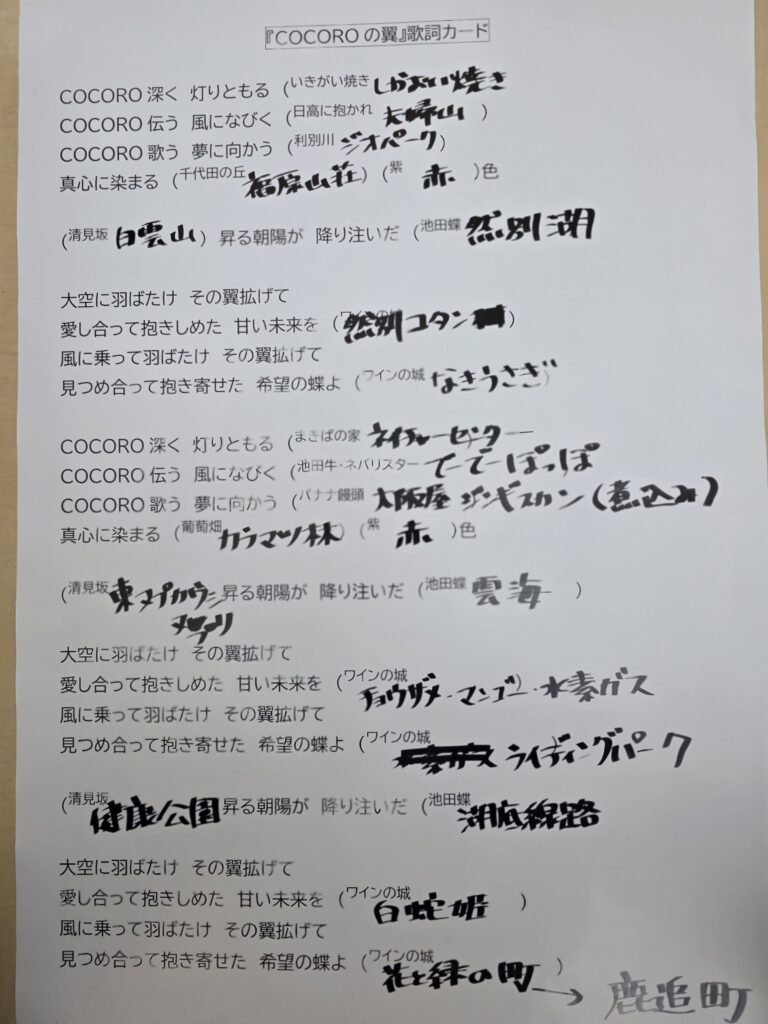 『COCOROの翼』歌詞カード
COCORO 深く 灯りともる (いきがい焼き しかおい焼き
COCORO 伝う 風になびく (日高に抱かれ 夫婦山 )
COCORO 歌う 夢に向かう (利別川 ジオパーク)
真心に染まる (千代田の丘 福原山荘) (紫 赤 )色
(清見坂 白雲山) 昇る朝陽が 降り注いだ (池田蝶 然別湖
大空に羽ばたけ その翼拡げて
愛し合って抱きしめた 甘い未来を (ワインの城 然別コタン )
風に乗って羽ばたけ その翼拡げて
見つめ合って抱き寄せた 希望の蝶よ (ワインの城 なきうさぎ)
COCORO 深く 灯りともる (まきばの家 ネイチャーセンター
COCORO 伝う 風になびく (池田牛・ネバリスター てーでーぽっぽ
COCORO 歌う 夢に向かう (バナナ饅頭 大阪屋 ジンギスカン(煮込み)
真心に染まる (葡萄畑 カラマツ林) (紫 赤 )色
(清見坂 東ヌプカウシヌプリ 昇る朝陽が 降り注いだ (池田蝶 雲海 )
大空に羽ばたけ その翼拡げて
愛し合って抱きしめた 甘い未来を (ワインの城 チョウザメ・マンゴー)・水素ガス
風に乗って羽ばたけ その翼拡げて
見つめ合って抱き寄せた 希望の蝶よ (ワインの城 ライディングパーク
(清見坂 健康公園 昇る朝陽が 降り注いだ (池田蝶 湖底線路
大空に羽ばたけ その翼拡げて
愛し合って抱きしめた 甘い未来を (ワインの城 白蛇姫 )
風に乗って羽ばたけ その翼拡げて
見つめ合って抱き寄せた 希望の蝶よ (ワインの城 花と緑の町 ) → 鹿追町